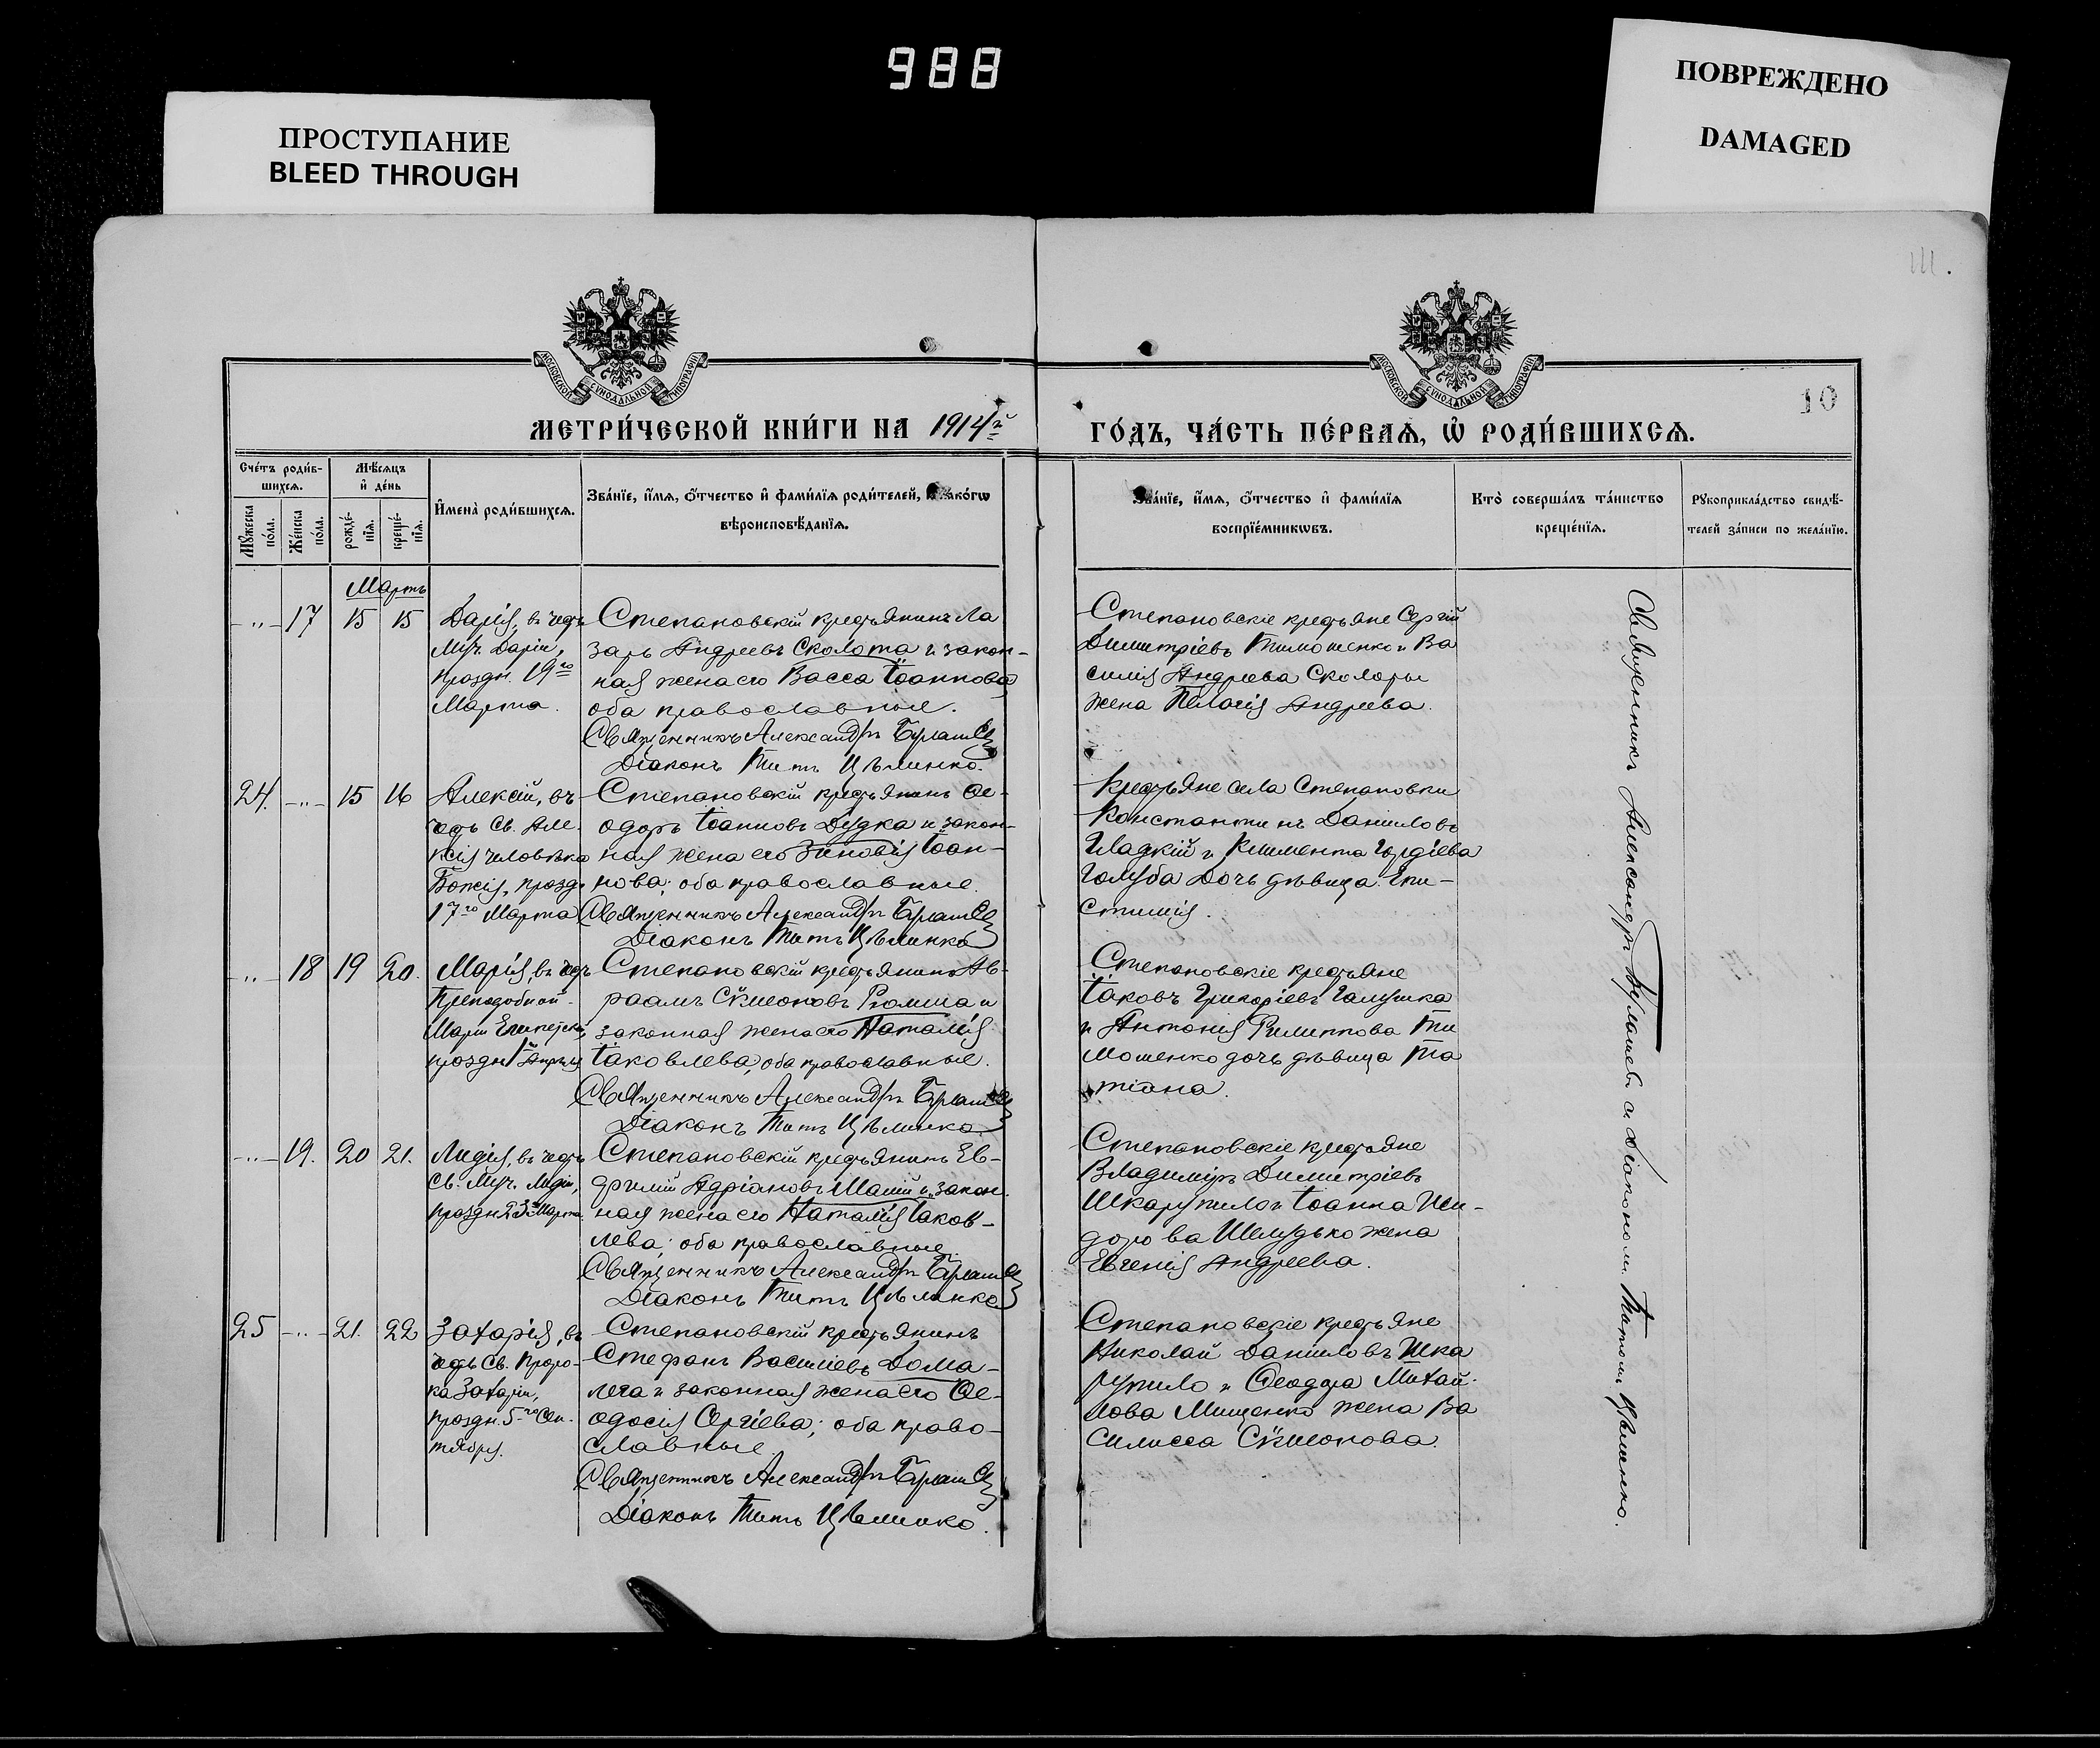 988
ПРОСТУПАНИЕ
BLEED THROUGH
ПОВРЕЖДЕНО
DAMAGED
111.
10
МЕТРИ́ЧЕСКОЙ КНИ́ГИ НА 1914й
ГО́ДЪ, ЧА́СТЬ ПЕ́РВАѦ, Ѡ҆ РОДИ́ВШИХСѦ.
Сче́тъ роди́в-
шихсѧ.
Мѣ́сѧцъ
и҆ де́нь
Мꙋ́жеска
по́ла.
Же́нска
по́ла.
рожде́-
нїѧ.
креще́-
нїѧ.
И҆мена̀ роди́вшихсѧ.
Зва́нїе, и҆́мѧ, ѻ҆́тчество и҆ фами́лїѧ роди́телей, и҆ како́гѡ
вѣроисповѣ́данїѧ.
Зва́нїе, и҆́мѧ, ѻ҆́тчество и҆ фами́лїѧ
воспрїе́мникѡвъ.
Кто̀ соверша́лъ та́инство
креще́нїѧ.
Рꙋкоприкла́дство свидѣ́-
телей за́писи по жела́нїю.
Мартъ
-"- 17 15 15
Дарія, въ честь
Муч. Даріи,
праздн. 19го
Марта.
Степановскій крестьянинъ Ла
зарь Андреевъ Сколота и закон-
ная жена его Васса Іоаннова
оба православные.
Священникъ Александръ Булашев
Діаконъ Титъ Цѣлинко.
Степановскіе крестьяне Сергій
Димитріевъ Тимошенко и Ва
силія Андреева Сколоты
жена Пелагія Андреева.
24. -"- 15 16
Алексій, въ
честь Св. Але-
ксія человѣка
Божія, празд.
17го Марта
Степановскій крестьянинъ Ѳе-
одоръ Іоанновъ Дудка и закон-
ная жена его Зиновія Іоан-
нова; оба православные.
Священникъ Александръ Булашев
Діаконъ Титъ Цѣлинко
Крестьяне села Степановки
Константинъ Даниловъ
Гладкій и Климента Гордіева
Голуба дочь дѣвица Епи-
стимія.
-"- 18 19 20.
Марія, въ честь
Преподобной
Маріи Египетской,
праздн 1го Апрѣля
Степановскій крестьянинъ Ав-
раамъ Сѵмеоновъ Ромша и
законная жена его Наталія
Іаковлева, оба православные.
Священникъ Александръ Булашев
Діаконъ Титъ Цѣлинко.
Степановскіе крестьяне
Іаковъ Григоріевъ Галушка
и Антонія Филиппова Ти
мошенко дочь дѣвица Та
тіана.
-"- 19. 20 21.
Лидія, въ честь
Св. Муч. Лидіи,
праздн 23го Марта.
Степановскій крестьянинъ Ев-
фимій Адріановъ Малій и закон.
ная жена его Наталія Іаков-
лева; оба православные.
Священникъ Александръ Булашев
Діаконъ Титъ Цѣлинко
Степановскіе крестьяне
Владиміръ Димитріевъ
Шкарупило и Іоанна Иси-
дорова Шелудько жена
Евгенія Андреева.
25 -"- 21. 22
Захарія, въ
честь Св. Проро-
ка Захаріи,
праздн. 5-го Сен-
тября.
Степановскій крестьянинъ
Стефанъ Василіевъ Дома-
лега и законная жена его Ѳе-
одосія Сергіева; оба право-
славные.
Священникъ Александръ Булашев
Діаконъ Титъ Цѣлинко.
Степановскіе крестьяне
Николай Даниловъ Шка
рупило и Ѳеодора Михай-
лова Мищенко жена Ва
силисса Сѵмеонова.
Священникъ Александръ Булашевъ съ діакономъ Титомъ Цѣлинко.